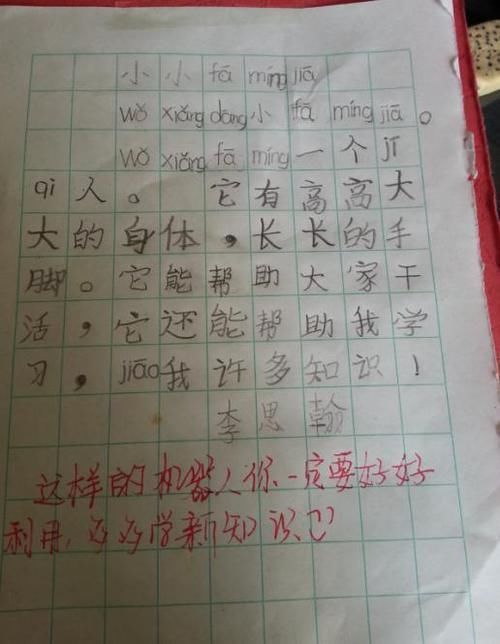 小小fā míng jiā
wǒ xiǎng dāng小 fā míng jiā。
wǒ xiǎng fā míng一个jī
qì人。 它有高高大
大的身体，长长的手
脚。它能帮助大家干
活，它还能帮助我学
习，jiāo我许多知识！
李思翰
这样的机器人你一定要好好
利用，多多学新知识